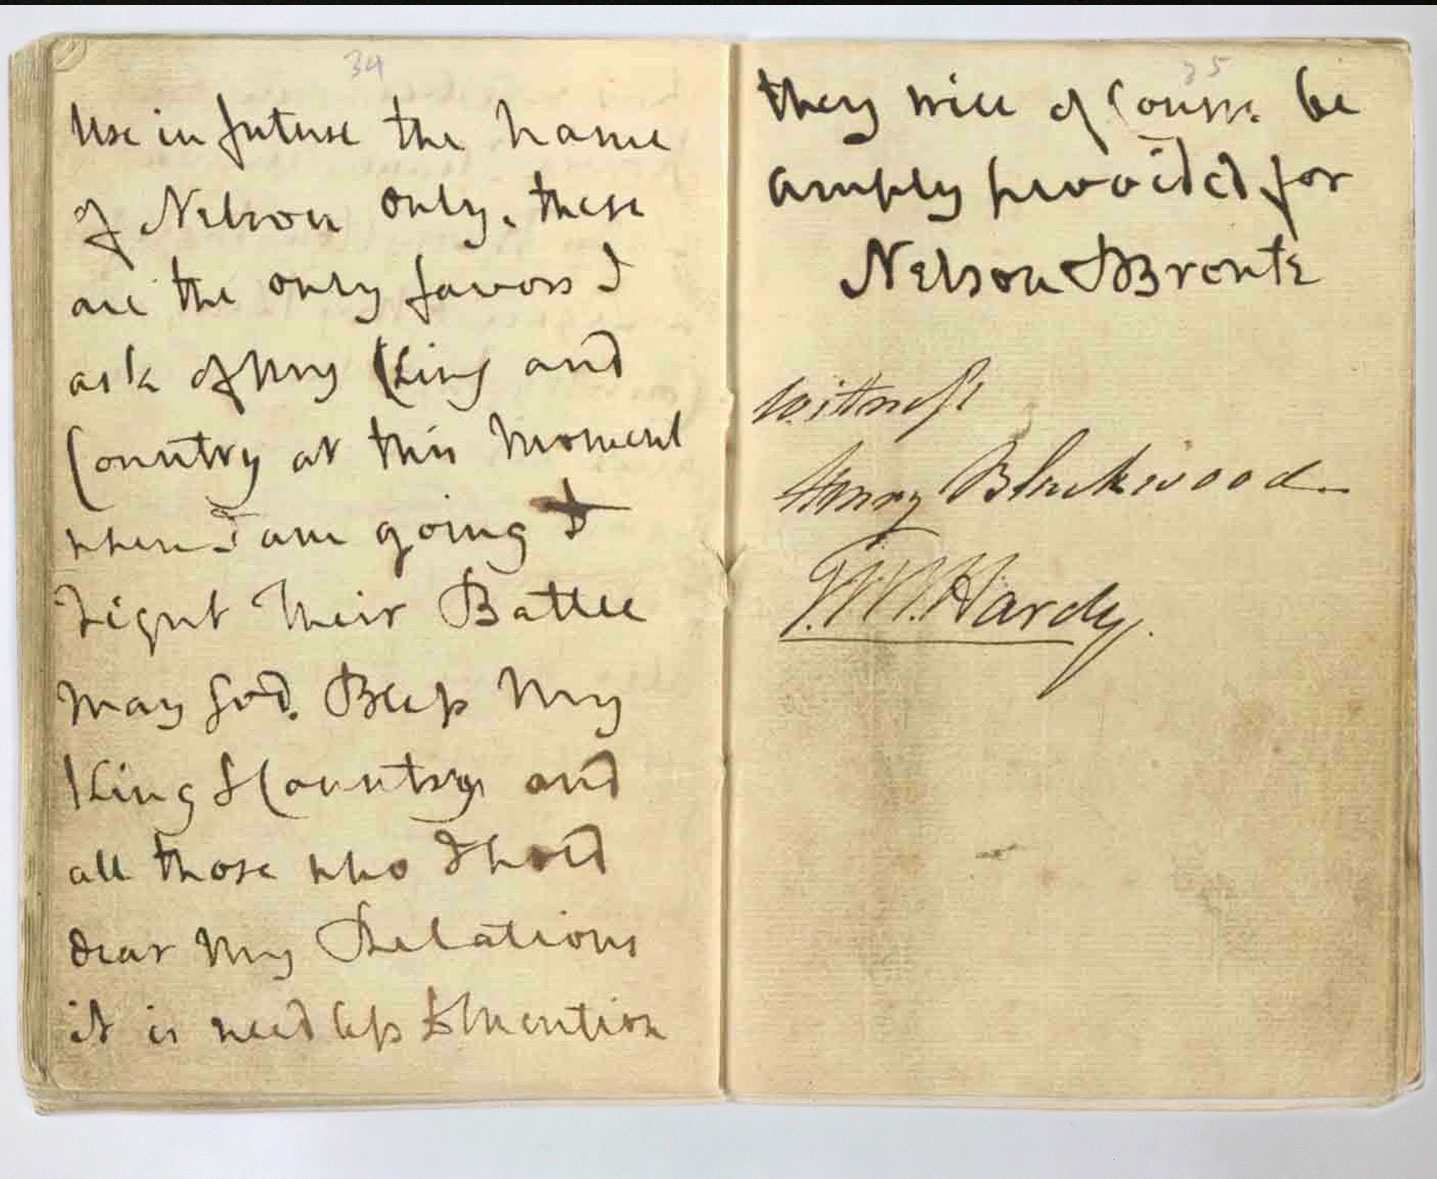 34
Use in future the name
of Nelson only, these
are the only favors I
ask of my King and
Country at this moment
when I am going to
Fight Their Battle
May God Bless My
King & Country and
all those who I hold
dear My Relations
it is needless to Mention
35
they will of Course be
amply provided for
Nelson & Bronte
Witness
Henry Blackwood
T.M. Hardy.